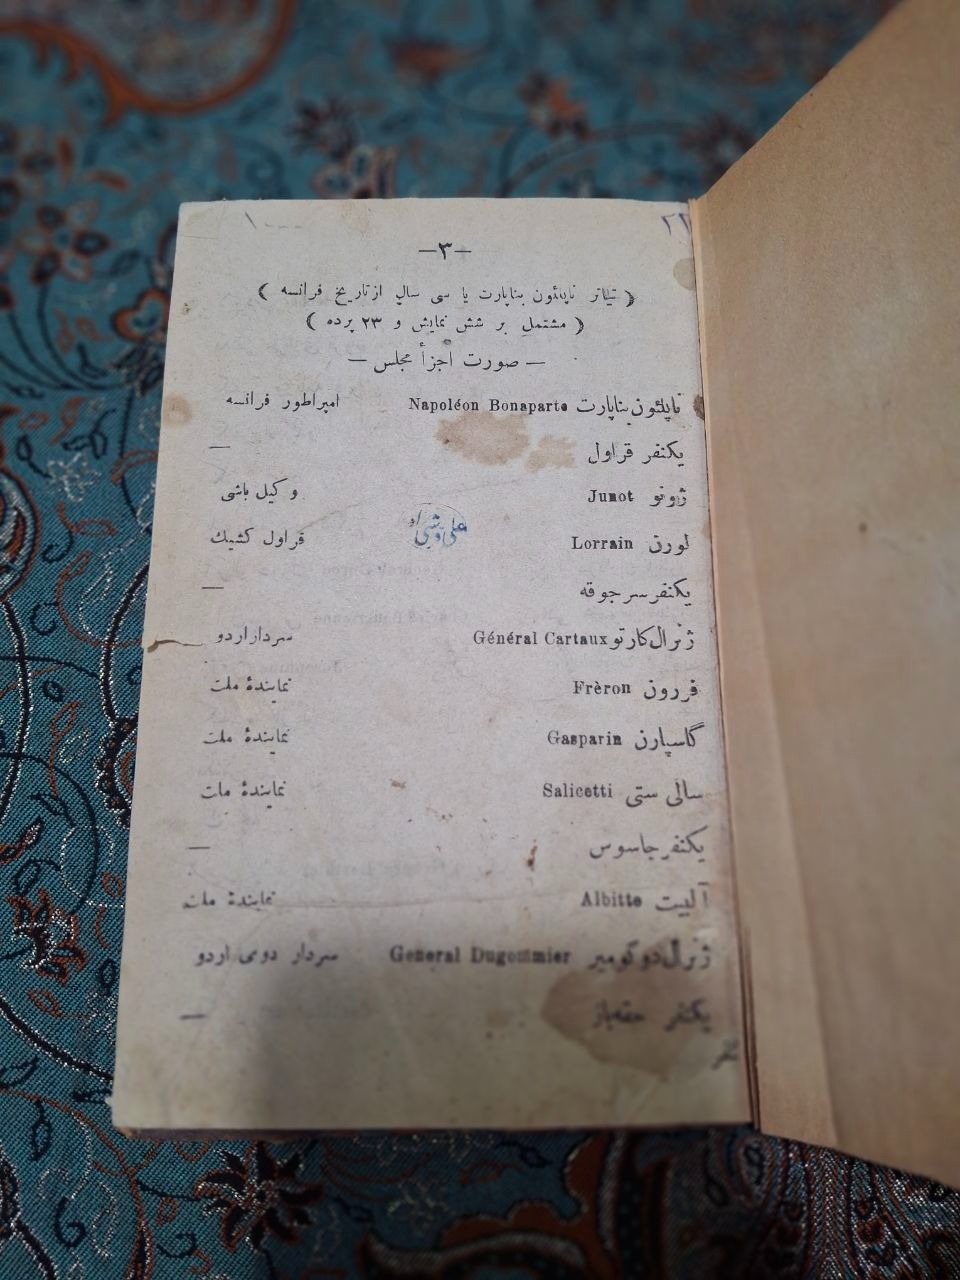 —٣—
( تیاتر ناپلئون بناپارت یا سی سال از تاریخ فرانسه )
( مشتمل بر شش نمایش و ٢٣ پرده )
— صورت اجزأ مجلس —
ناپلئون بناپارت Napoléon Bonaparte امپراطور فرانسه
یکنفر قراول —
ژونو Junot وکیل باشی
لورن Lorrain قراول کشیك
یکنفر سرجوقه —
ژنرال کارتو Général Cartaux سردار اردو
فررون Frèron نمایندهٔ ملت
گاسپارن Gasparin نمایندهٔ ملت
سالی ستی Salicetti نمایندهٔ ملت
یکنفر جاسوس —
آلبیت Albitte نمایندهٔ ملت
ژنرال دوکومیر General Dugommier سردار دوی اردو
یکنفر حقه‌باز —